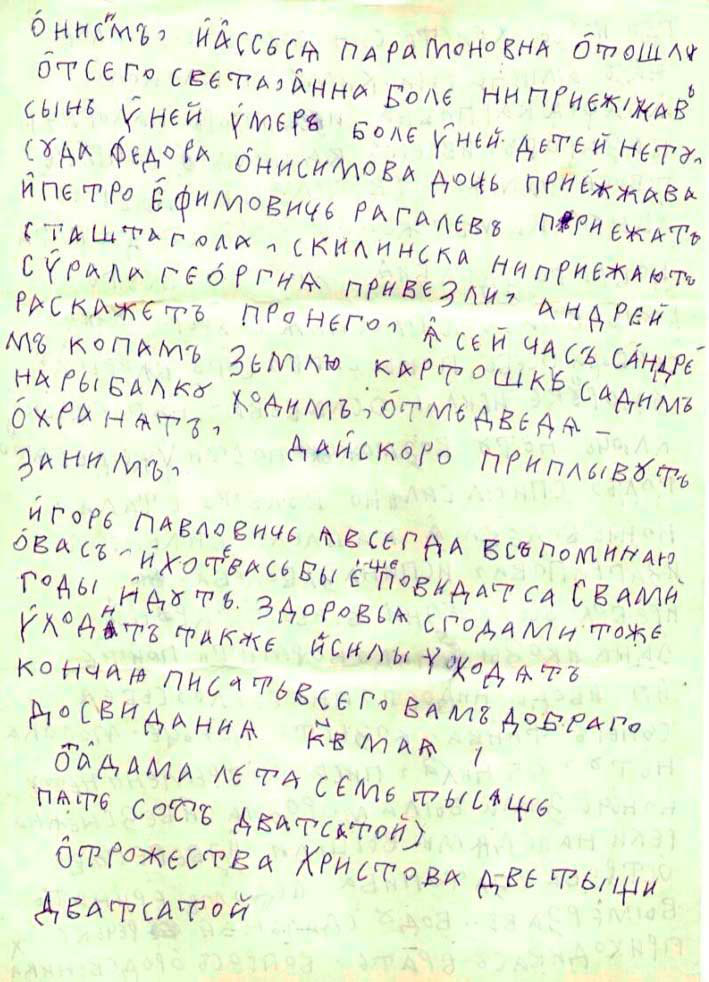 О҆нисимъ, И҆А҆ссьсѧ парамоновна О҆тошлꙋ
О҆тсего света, А҆нна боле ниприежжавъ
сынъ У҆ней У҆меръ боле У҆ней детей нету,
сꙋда федора О҆нисимова дочь приежжава
И҆петро Е҆фимовичь рагалевъ приежать
сташтагола, скилинска ниприежають
сУ҆рала геО҆ргиѧ привезли, андрей
раскажеть пронего, А҆ сей часъ сА҆ндре
мъ копамъ землю картошкъ садимъ
нарыбалкꙋ ходимъ, О҆тмедведѧ –
О҆хранѧтъ, дай скоро приплывꙋть
занимъ,
И҆горь павловичь ѧвсегда всъпоминаю
О҆васъ, И҆хотевасьбы Е҆ще повидатсѧ свами
годы И҆дꙋть. здоровьѧ сгодами тоже
У҆ходить также И҆силы Ꙋходѧтъ
кончаю писатьвсего вамъ добраго
досвиданиѧ к҃в маѧ,
О҆тА҆дама лета семь тысѧще
пѧте сотъ дватсѧтой)
О҆трожества христова две тыщи
дватсѧтой